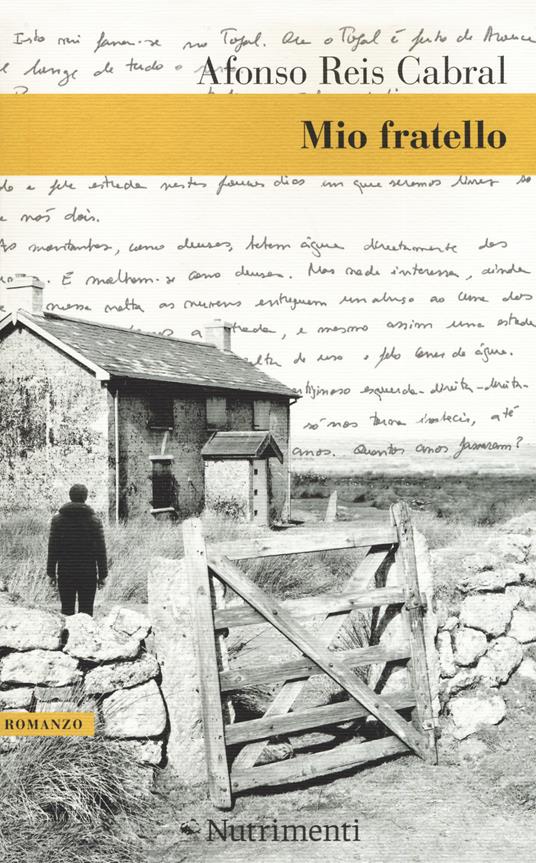 Isto no Tojal. Que o Tojal é perto de Arouca
e longe de tudo o
Afonso Reis Cabral
Mio fratello
e pela estrada nestes poucos dias em que seremos livres
e nós dois.
As montanhas, como deuses, bebem água directamente dos
E molham-se como deuses. Mas nada interessa, ainda
nessa malta as nuvens entreguem um abraço ao cume dos
e mesmo assim uma estrada
falta de uso e pelo correr da água.
esquerda-direita-direita-
só nos torna imóveis, até
anos. Quantos anos passaram?
ROMANZO
Nutrimenti